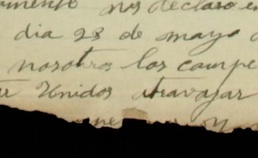 nos declaro en
dia 28 de mayo
nosotros los campe
Unidos travajar
y